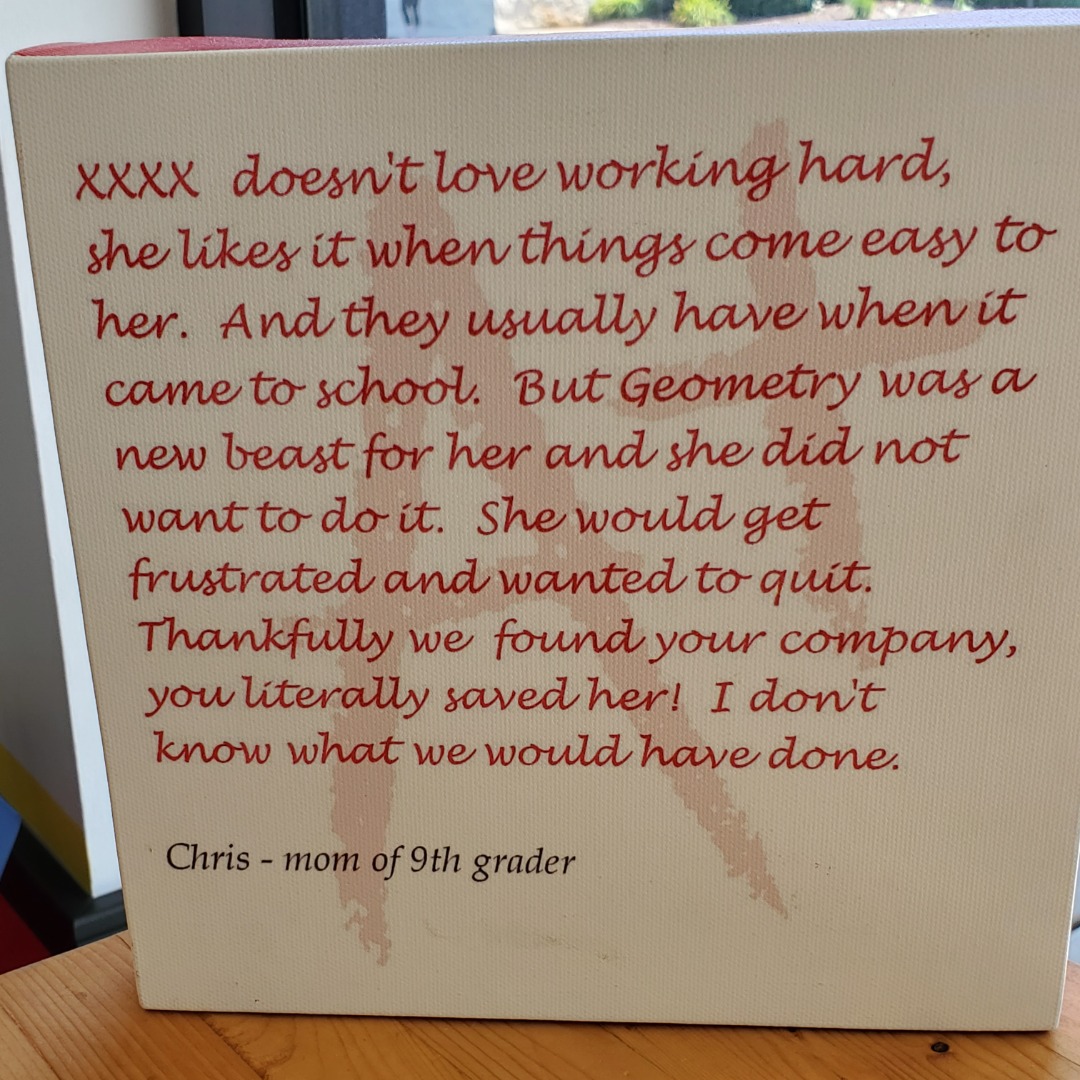 XXXX doesn't love working hard,
she likes it when things come easy to
her. And they usually have when it
came to school. But Geometry was a
new beast for her and she did not
want to do it. She would get
frustrated and wanted to quit.
Thankfully we found your company,
you literally saved her! I don't
know what we would have done.
Chris - mom of 9th grader